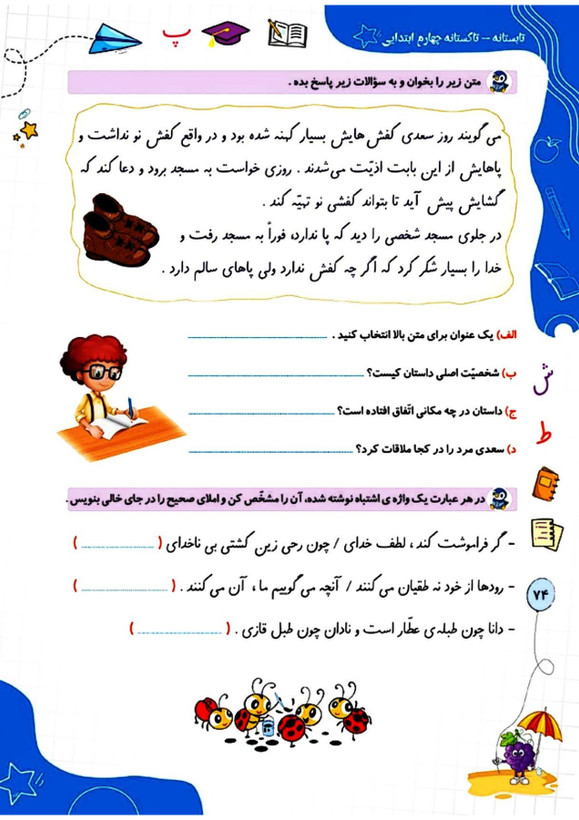 تابستانه – تاکستانه چهارم ابتدایی
پ
متن زیر را بخوان و به سؤالات زیر پاسخ بده .
می گویند روز سعدی کفش هایش بسیار کهنه شده بود و در واقع کفش نو نداشت و
پاهایش از این بابت اذیّت می شدند . روزی خواست به مسجد برود و دعا کند که
گشایش پیش آید تا بتواند کفشی نو تهیّه کند .
در جلوی مسجد شخصی را دید که پا ندارد، فوراً به مسجد رفت و
خدا را بسیار شکر کرد که اگر چه کفش ندارد ولی پاهای سالم دارد .
الف) یک عنوان برای متن بالا انتخاب کنید .
ب) شخصیّت اصلی داستان کیست؟
ج) داستان در چه مکانی اتّفاق افتاده است؟
د) سعدی مرد را در کجا ملاقات کرد؟
ش
ط
در هر عبارت یک واژه ی اشتباه نوشته شده، آن را مشخّص کن و املای صحیح را در جای خالی بنویس.
- گر فراموشت کند ، لطف خدای / چون رحی زین کشتی بی ناخدای ( .................. )
- رودها از خود نه طقیان می کنند / آنچه می گوییم ما ، آن می کنند . ( .................. )
- دانا چون طبله ی عطّار است و نادان چون طبل قازی . ( .................. )
۷۴